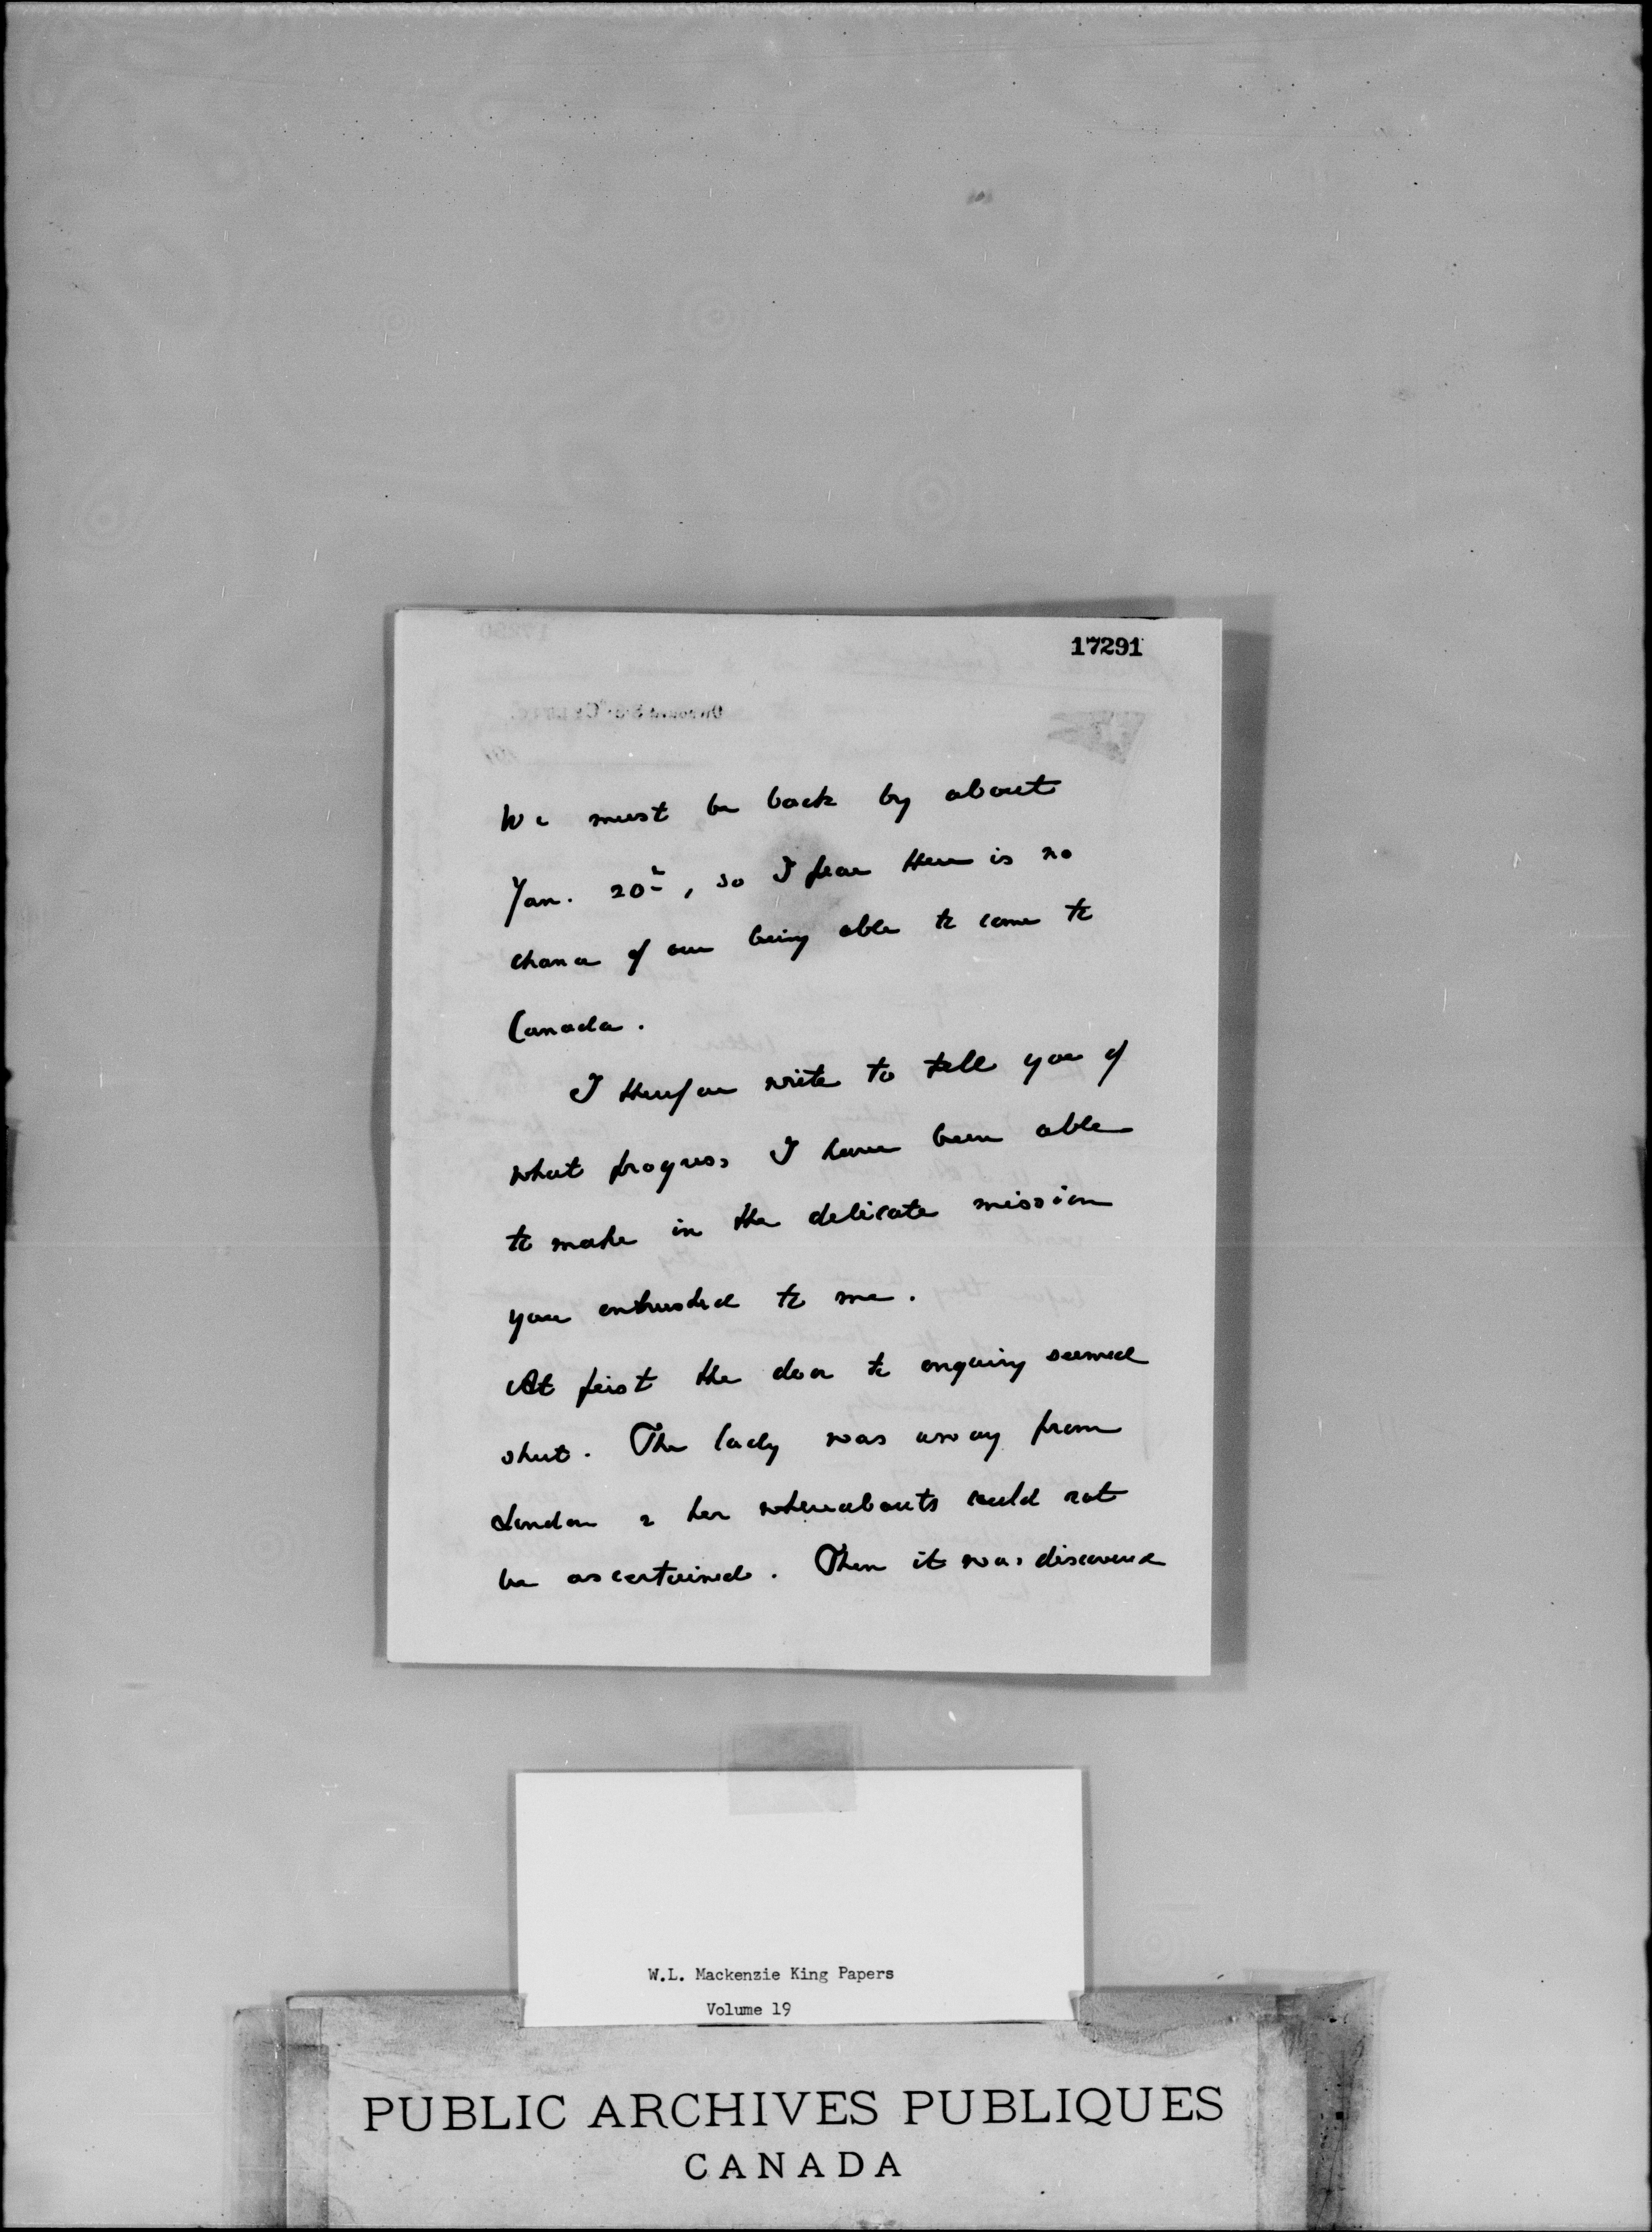 17291
We must be back by about
Jan. 20th, so I fear there is no
chance of our being able to come to
Canada.
I therefore write to tell you of
what progress I have been able
to make in the delicate mission
you entrusted to me.
At first the door to enquiry seemed
shut. The lady was away from
London & her whereabouts could not
be ascertained. Then it was discovered
W.L. Mackenzie King Papers
Volume 19
PUBLIC ARCHIVES PUBLIQUES
CANADA